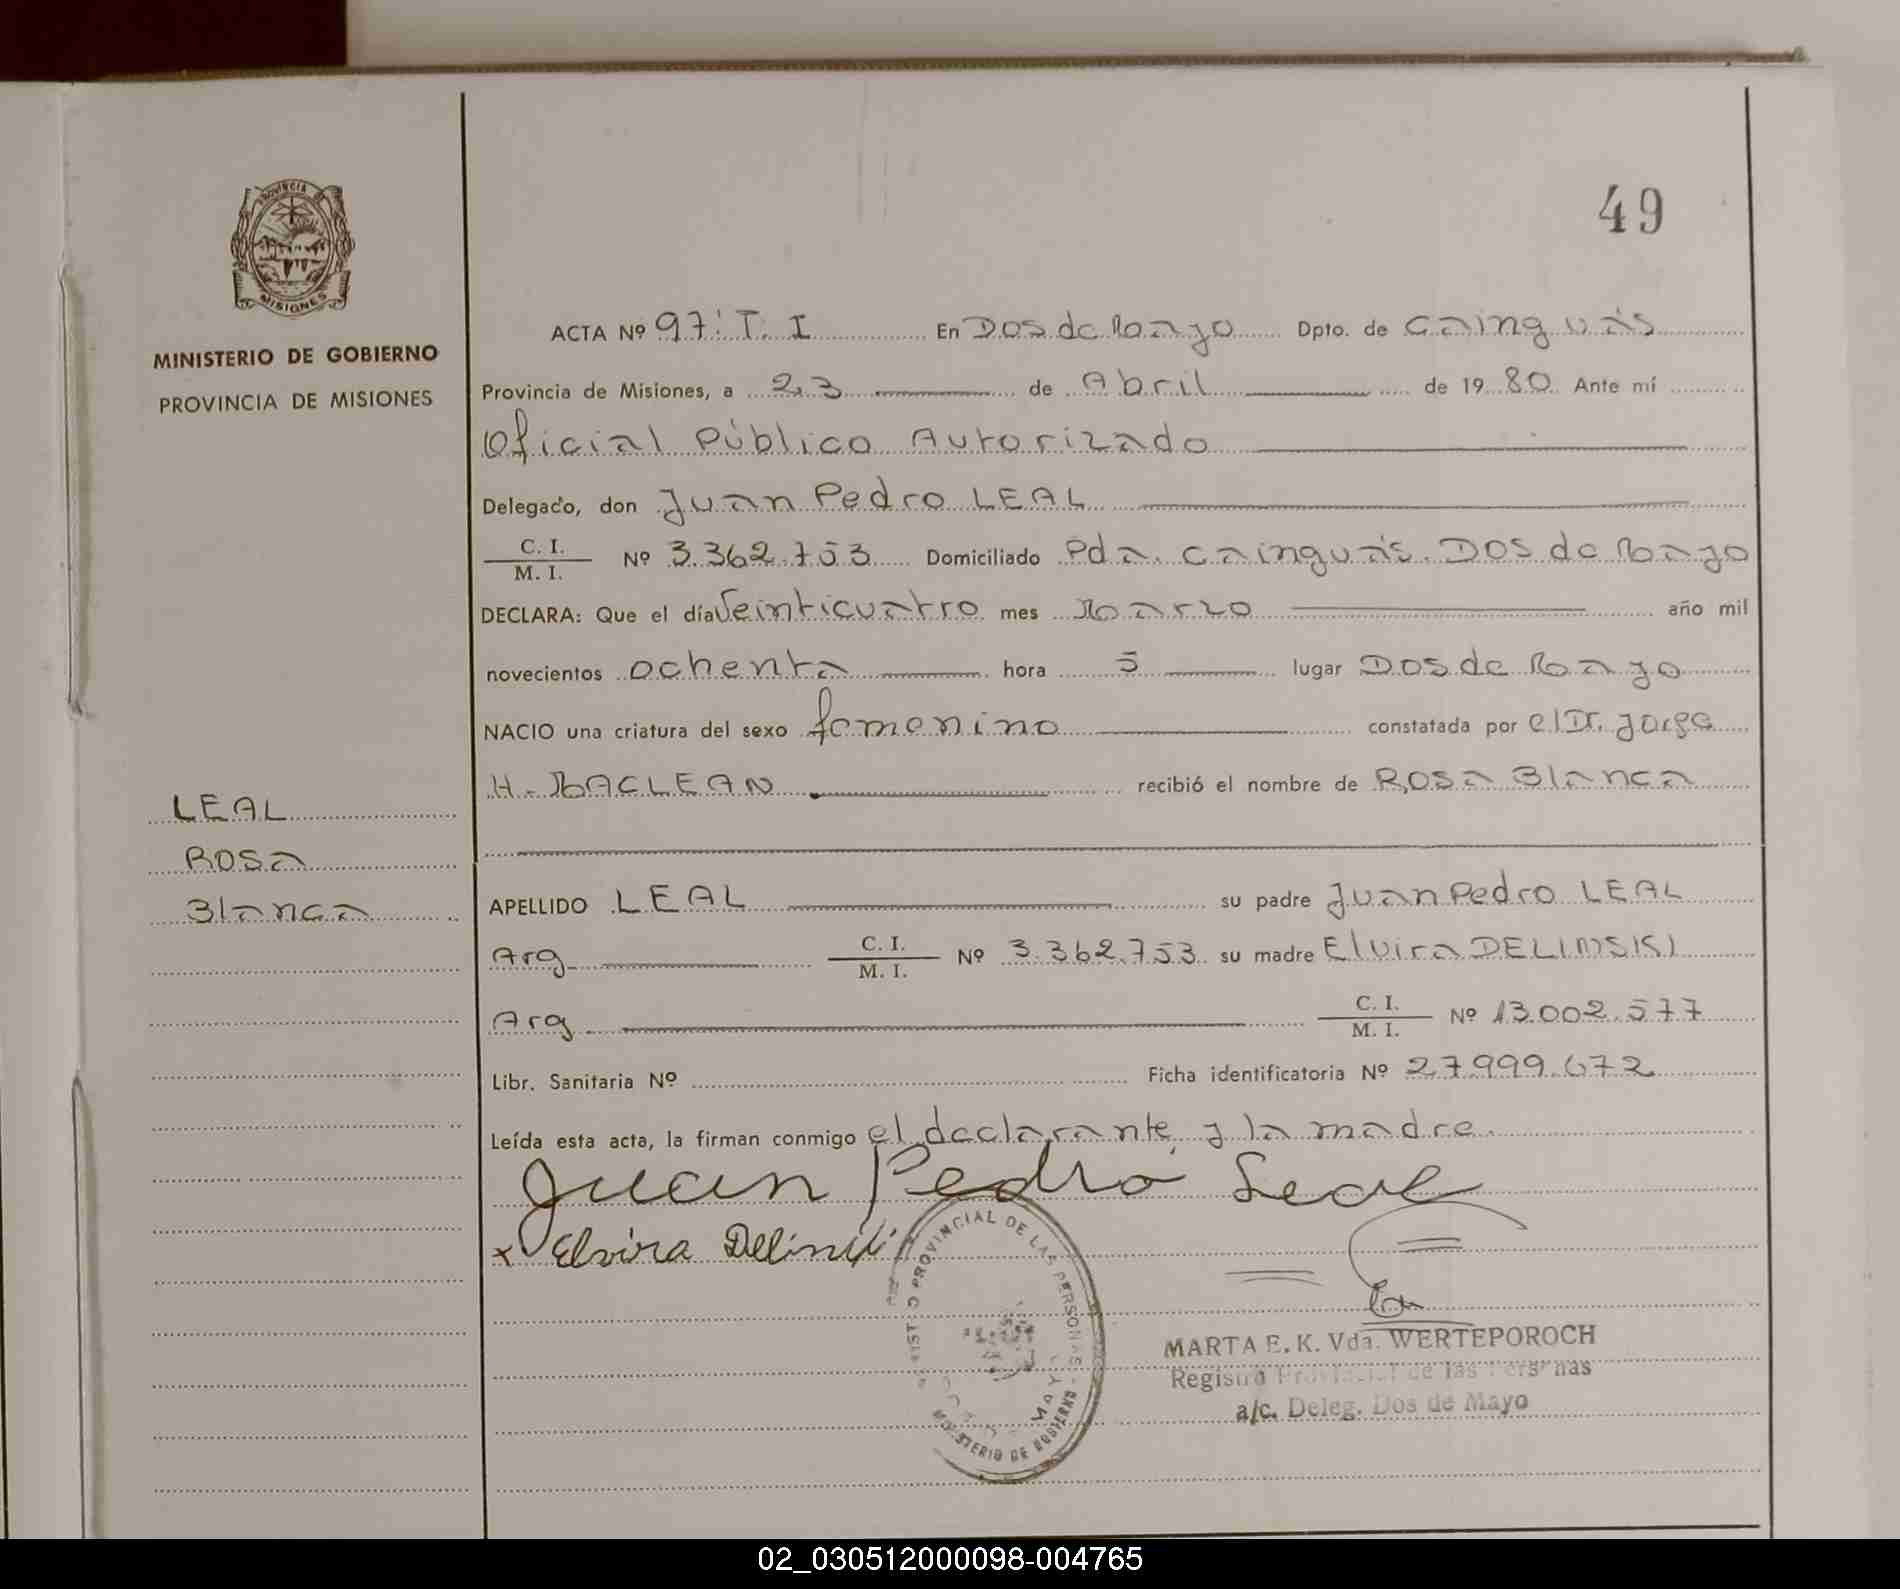 49
PROVINCIA
MISIONES
MINISTERIO DE GOBIERNO
PROVINCIA DE MISIONES
ACTA Nº 97: T. I En Dos de Mayo Dpto. de Cainguás
Provincia de Misiones, a 23 de Abril de 1980 Ante mí
Oficial Público Autorizado
Delegado, don Juan Pedro LEAL
C. I. / M. I. Nº 3.362.753 Domiciliado Pda. Cainguás. Dos de Mayo
DECLARA: Que el día Veinticuatro mes Marzo año mil
novecientos ochenta hora 5 lugar Dos de Mayo
NACIO una criatura del sexo femenino constatada por el Dr. Jorge
H. MACLEAN recibió el nombre de Rosa Blanca
LEAL
ROSA
Blanca
APELLIDO LEAL su padre Juan Pedro LEAL
Arg. C. I. / M. I. Nº 3.362.753 su madre Elvira DELINSKI
Arg. C. I. / M. I. Nº 13.002.577
Libr. Sanitaria Nº Ficha identificatoria Nº 27.999.672
Leída esta acta, la firman conmigo el declarante y la madre.
Juan Pedro Leal
x Elvira
PROVINCIAL DE LAS PERSONAS - MINISTERIO DE GOBIERNO
MARTA E. K. Vda. WERTEPOROCH
Registro Provincial de las Personas
a/c. Deleg. Dos de Mayo
02_030512000098-004765